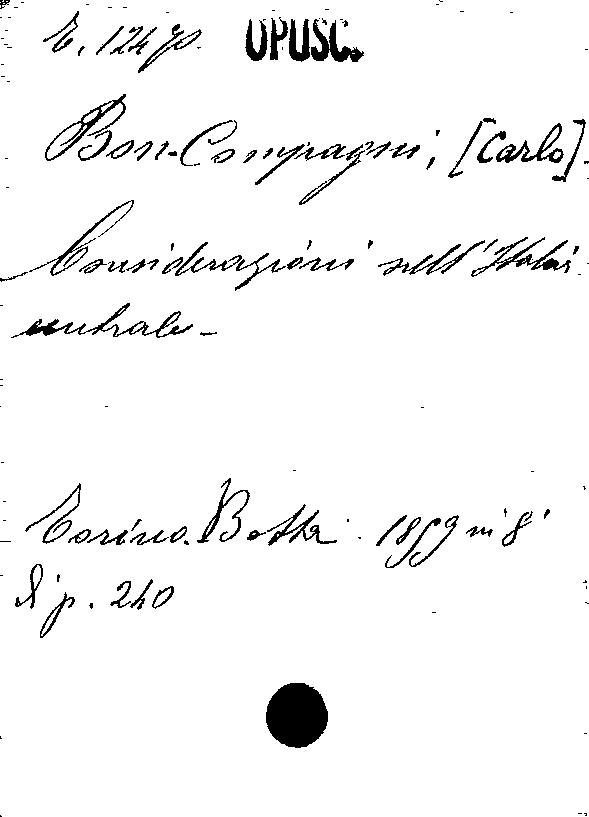 E. 12470. OPUSC.
Bon-Compagni, [Carlo].
Considerazioni sull'Italia
centrale -
Torino. Botta. 1859 in 8°
di p. 240